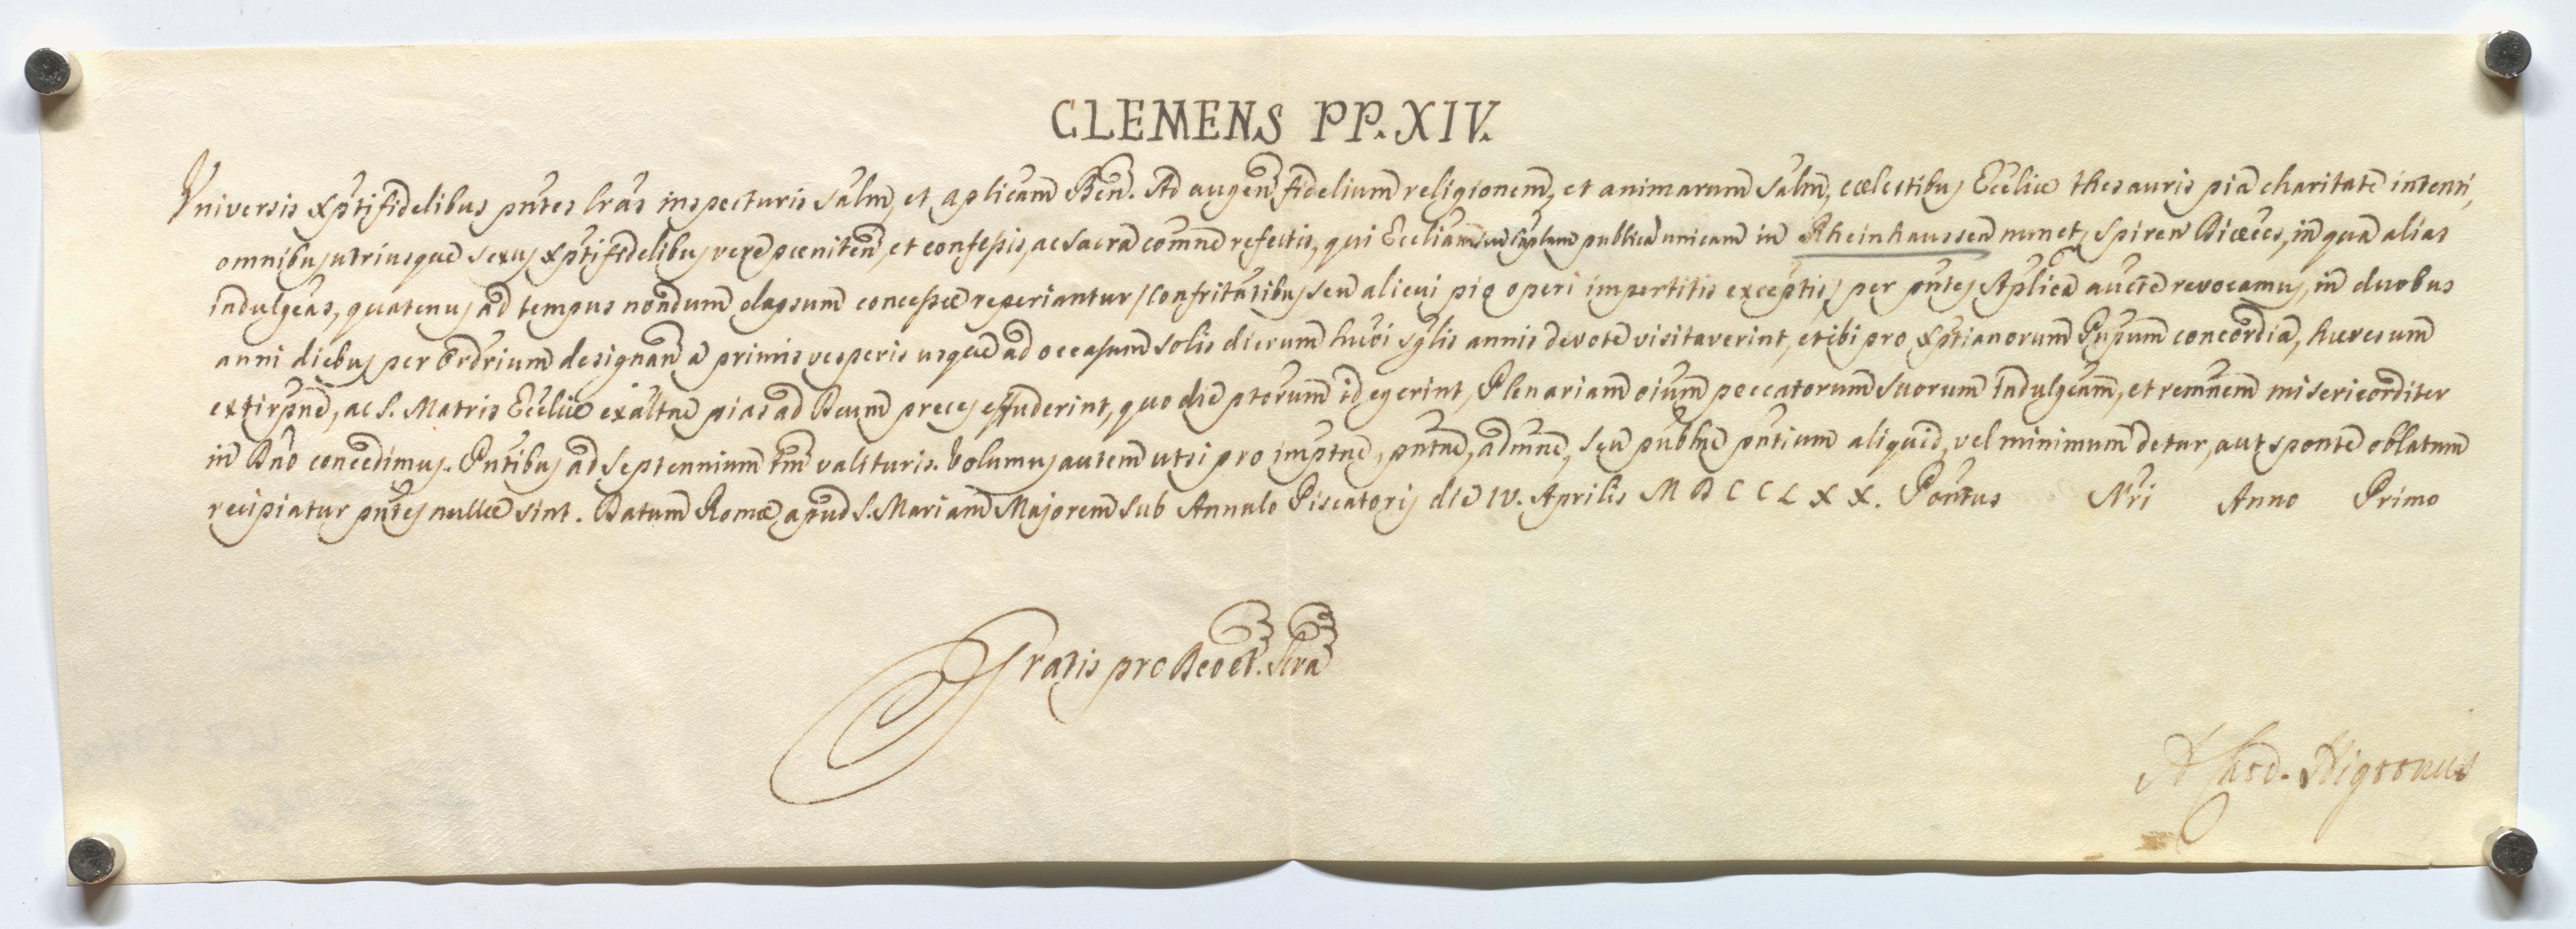 CLEMENS PP. XIV.
Universis Xptifidelibus pntes lras inspecturis Salm, et Aplicam Ben. Ad augen fidelium religionem, et animarum Salm, coelestibus Ecclie thesauris pia charitate intenti,
omnibus utriusque sexus Xptifidelibus vere poeniten, et confessis, ac Sacra comne refectis, qui Eccliam seu publica unicam in Rheinhaussen nunc Spiren Dioeces, in qua alias
indulgeas, quatenus ad tempus nondum elapsum concessae reperiantur / Confritatibus seu alicui pio operi impertitis exceptis / per pntes Aplica aucte revocamus, in duobus
anni diebus per Ordrium designan a primis vesperis usque ad occasum solis dierum huoi sglis annis devote visitaverint, et ibi pro Xptianorum Pnpum concordia, haeresum
extirpne, ac S. Matris Ecclie exaltne pias ad Deum preces effuderint, quo die ptorum id egerint, Plenariam oium peccatorum Suorum Indulgeam, et remnem misericorditer
in Dno concedimus. Pntibus ad Septennium tm valituris. Volumus autem ut si pro imptne, pntne, admne, seu publne pntium aliquid, vel minimum detur, aut sponte oblatum
recipiatur pntes nullae sint. Datum Romae, apud S. Mariam Majorem sub Annulo Piscatoris die IV. Aprilis MDCCLXX. Pontus Nri Anno Primo
Gratis pro Deo et Scra
A Card. Nigronus